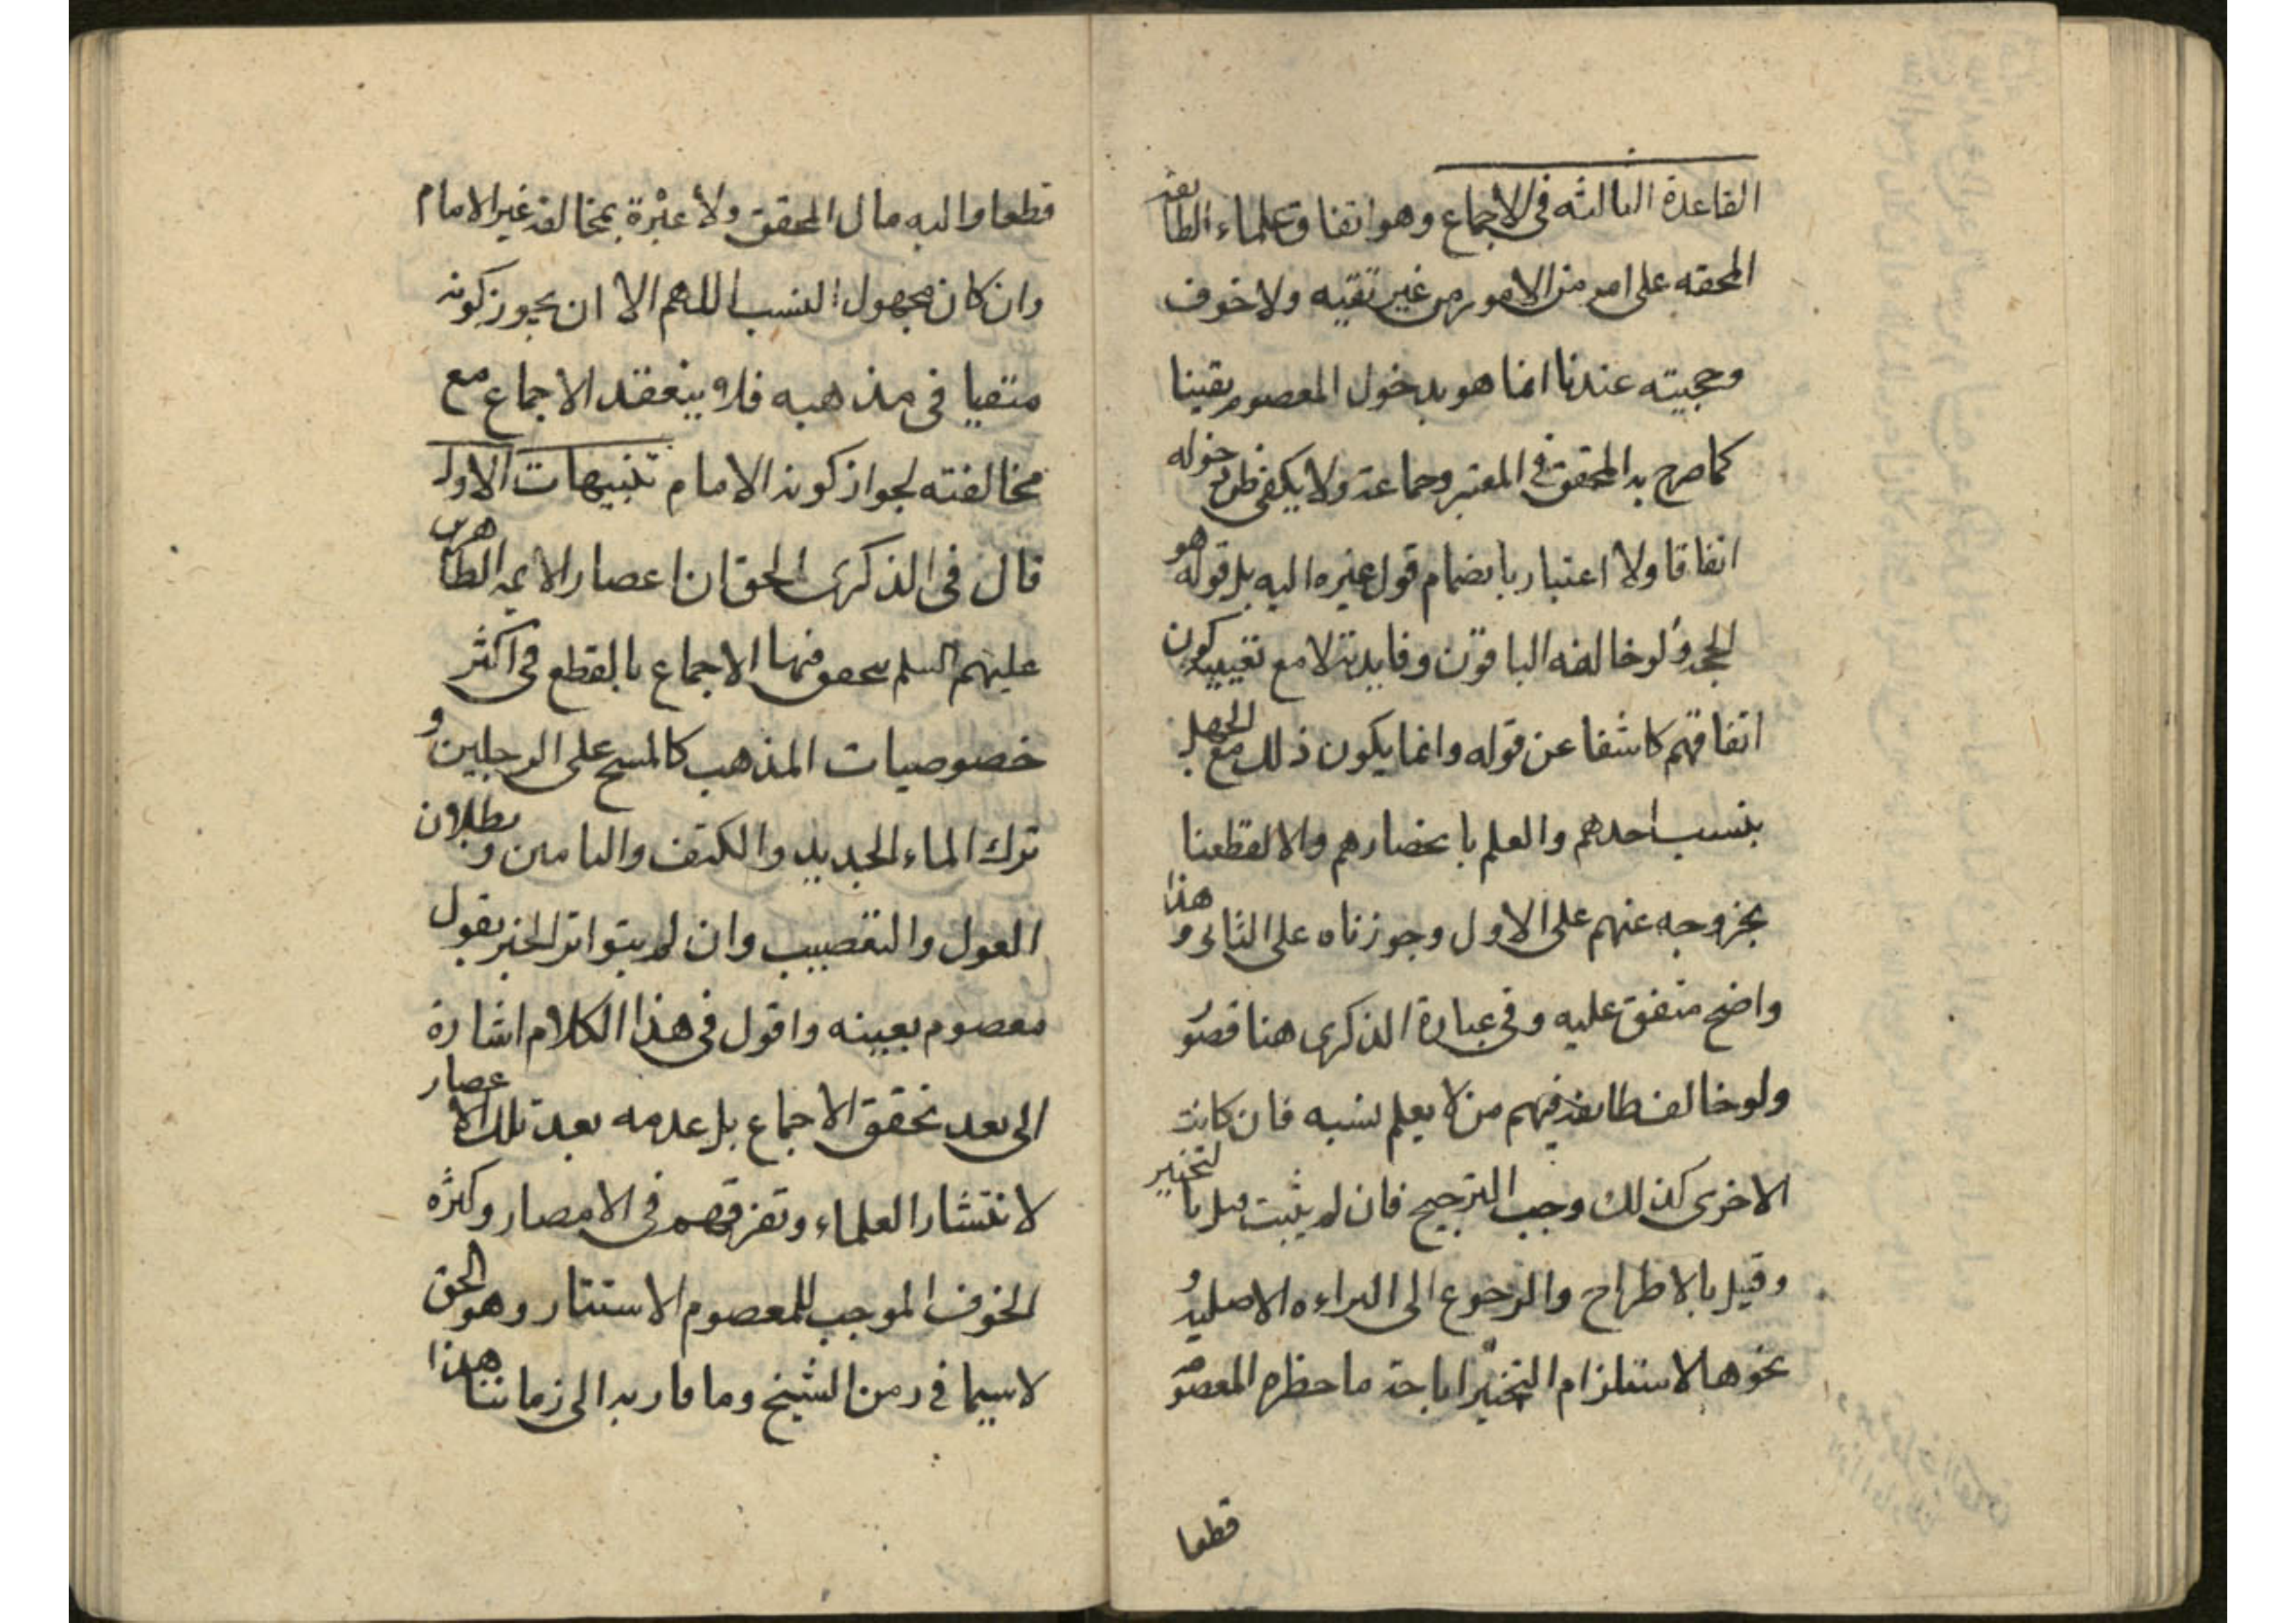 القاعدة الثالثه في الاجماع وهو اتفاق علماء الطائفة
المحقه على امر من الامور من غير تقيه ولا خوف
وحجيته عندنا انما هو بدخول المعصوم يقينا
كما صرح به المحقق في المعتبر وجماعة ولا يكفي ظن دخوله
اتفاقا ولا اعتبار بانضمام قول غيره اليه بل قوله هو
الحجة ولو خالفه الباقون وفايدته لا مع تعيينه كون
اتفاقهم كاشفا عن قوله وانما يكون ذلك مع الجهل
بنسب احدهم والعلم بانحصارهم والا لقطعنا
بخروجه عنهم على الاول وجوزناه على الثاني وهذا
واضح متفق عليه وفي عبارة الذكرى هنا قصور
ولو خالف طائفة فيهم من لا يعلم نسبه فان كانت
الاخرى كذلك وجب الترجيح فان لم يثبت قيل بالتخيير
وقيل بالاطراح والرجوع الى البراءه الاصلية و
نحوها لاستلزام التخيير اباحة ما حظره المعصوم
قطعا
قطعا واليه مال المحقق ولا عبرة بمخالفة غير الامام
وان كان مجهول النسب اللهم الا ان يجوز كونه
متقيا في مذهبه فلا ينعقد الاجماع مع
مخالفته لجواز كونه الامام تنبيهات الاول
قال في الذكرى الحق ان اعصار الائمة الطاهرين
عليهم السلم تحقق فيها الاجماع بالقطع في اكثر
خصوصيات المذهب كالمسح على الرجلين و
ترك الماء الجديد والكتف والتامين وبطلان
العول والتعصيب وان لم يتواتر الخبر بقول
معصوم بعينه واقول في هذا الكلام اشارة
الى بعد تحقق الاجماع بل عدمه بعد تلك الاعصار
لانتشار العلماء وتفرقهم في الامصار وكثره
الخوف الموجب للمعصوم الاستتار وهو الحق
لاسيما في زمن الشيخ وما قاربه الى زماننا هذا